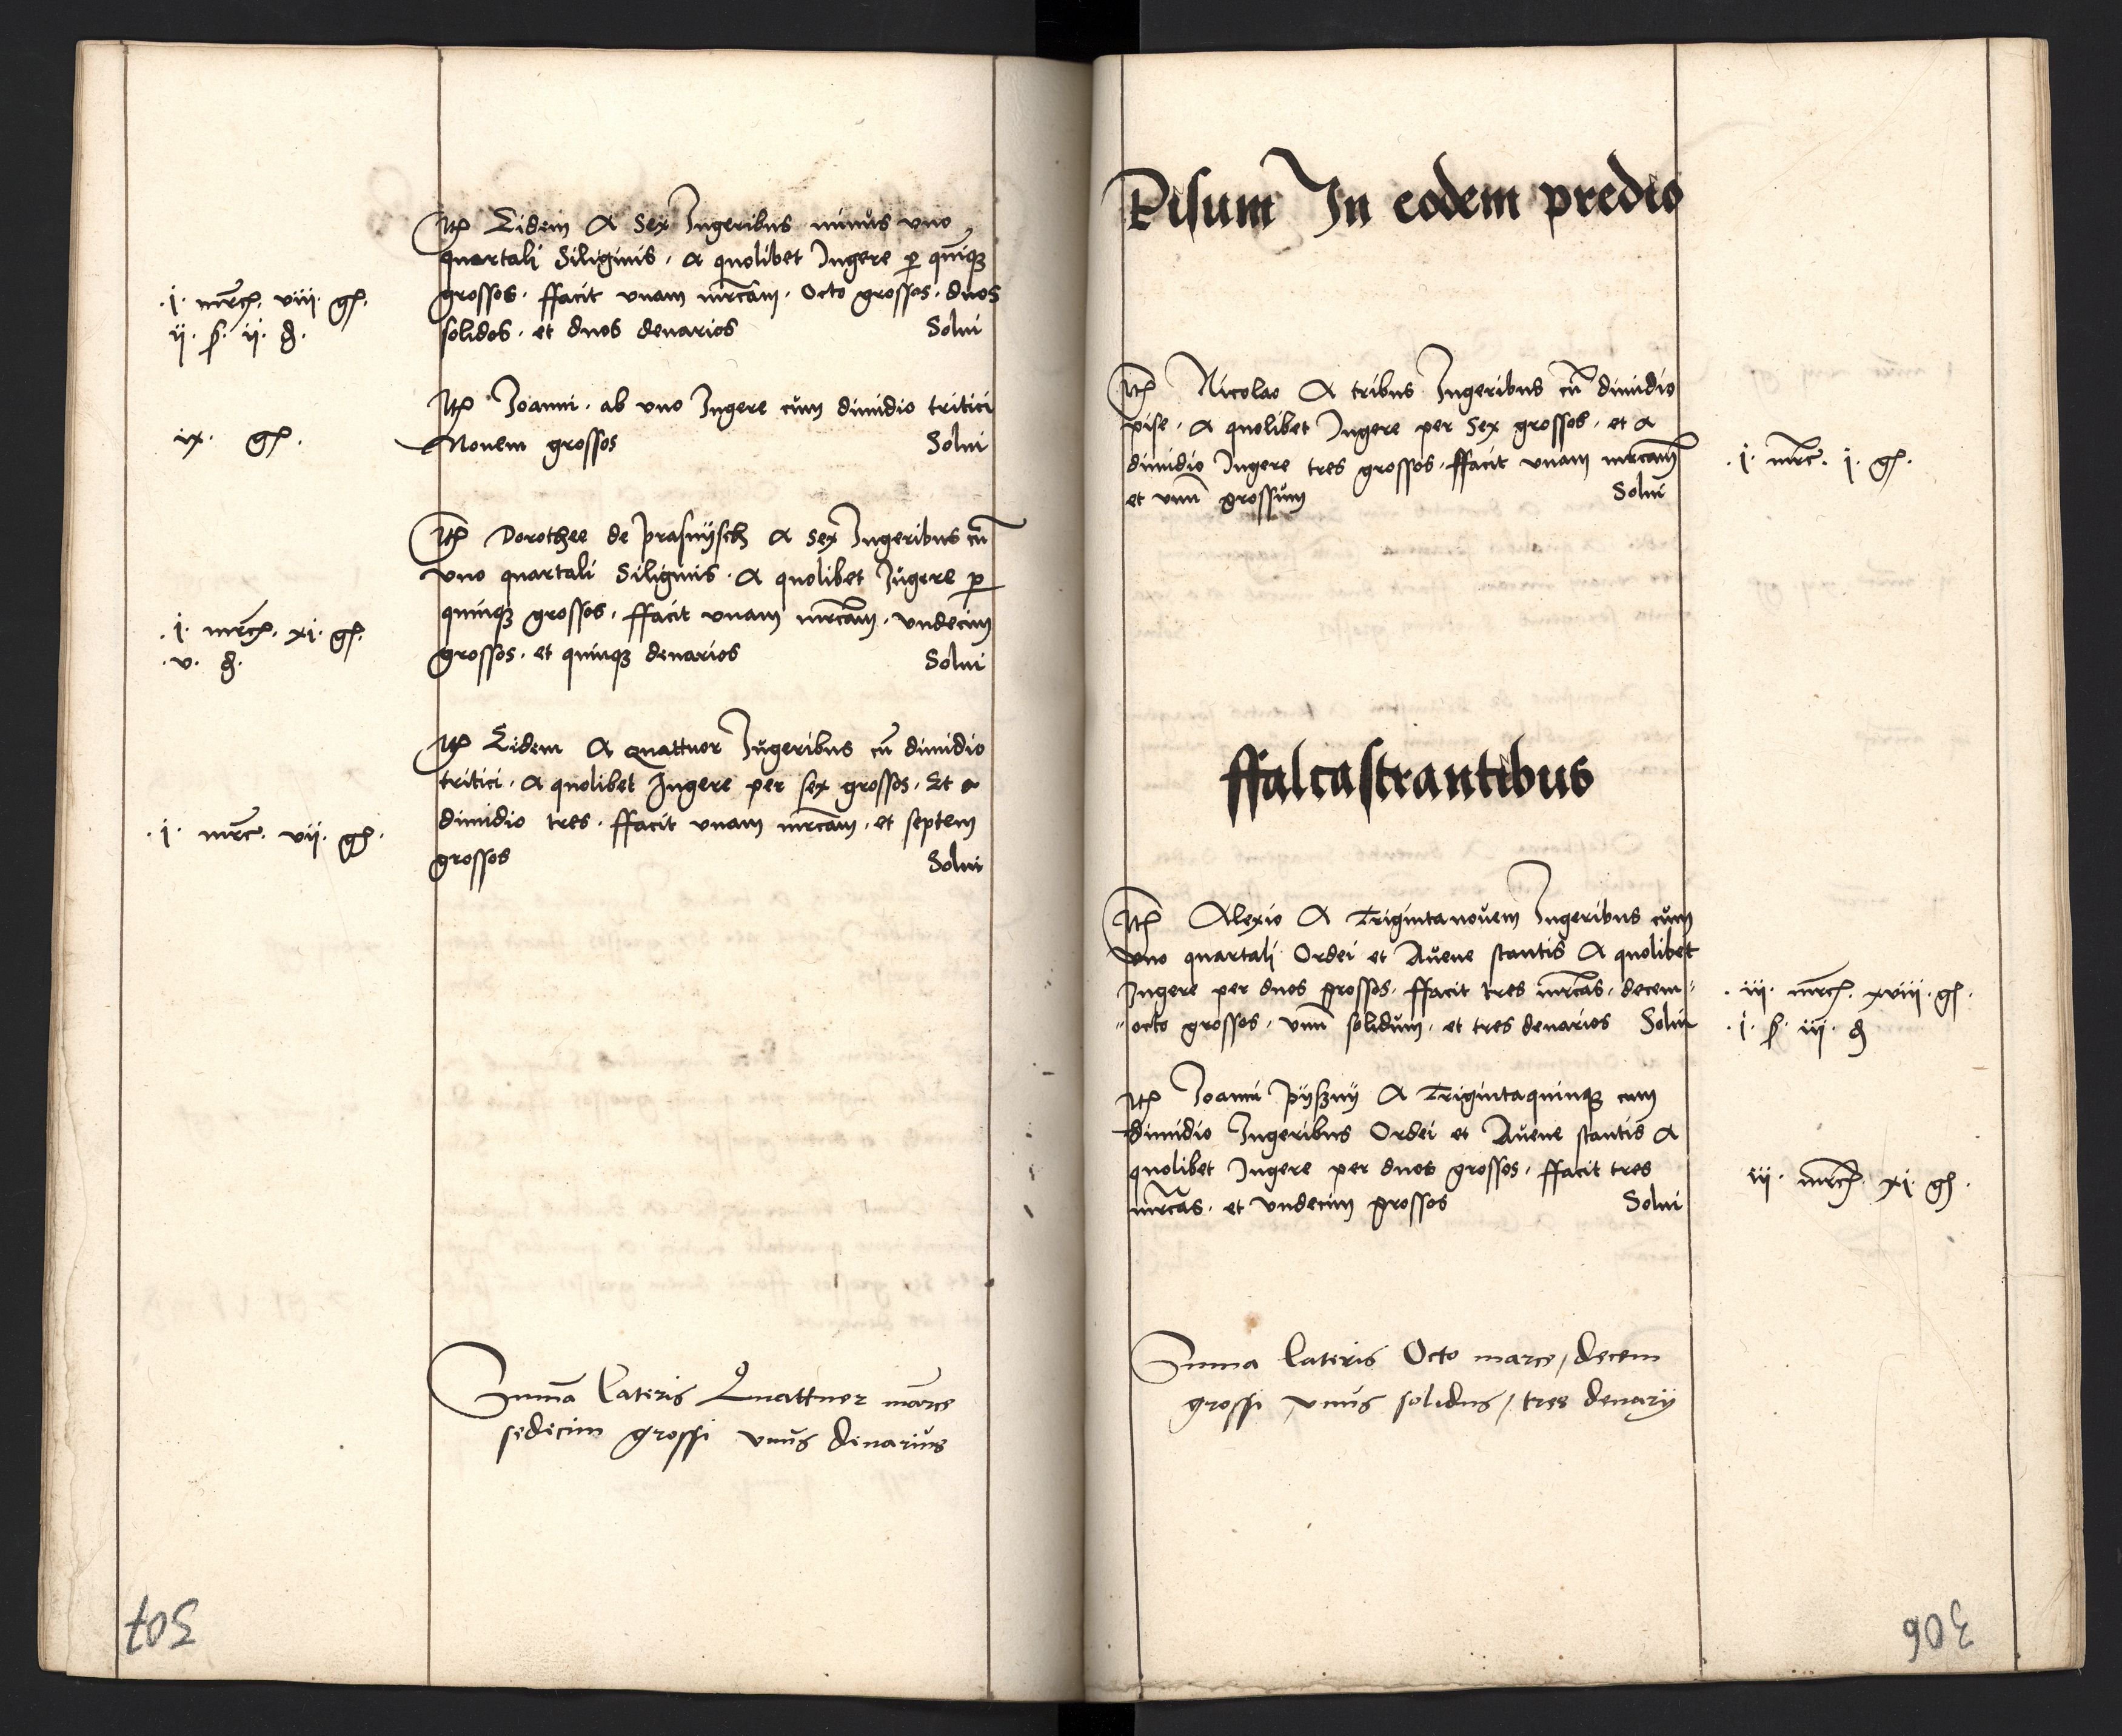 Itm Eidem A Sex Iugeribus minus uno
quartali Siliginis . A quolibet Iugere p quinq3
grossos . ffacit unam mrcam . Octo grossos . duos
solidos . et duos denarios Solui
.i. mrc. viii. gs.
ii. s. ii. d.
Itm Joanni . ab uno Iugere cum dimidio tritici
Nouem grossos Solui
ix. gs.
Itm Dorothee de prasnijsch A sex Iugeribus cu
uno quartali Siliginis . A quolibet Iugere p
quinq3 grossos . ffacit unam mrcam . undecim
grossos . et quinq3 denarios Solui
.i. mrc. xi. gs.
.v. d.
Itm Eidem A Quattuor Iugeribus cu dimidio
tritici . A quolibet Iugere per sex grossos . Et a
dimidio tres . ffacit unam mrcam . et septem
grossos Solui
.i. mrc. vii. gs.
Summa Lateris Quattuor marce
sedecim grossi unus denarius
307
Pisum In eodem predio
Itm Nicolao A tribus Iugeribus cu dimidio
pise . A quolibet Iugere per Sex grossos . et a
dimidio Iugere tres grossos . ffacit unam mrcam
et unu grossum Solui
.i. mrc. i. gs.
ffalcastrantibus
Itm Alexio A Trigintanouem Iugeribus cum
uno quartali Ordei et Auene stantis A quolibet
Iugere per duos grossos . ffacit tres mrcas . decem"
"octo grossos . unu solidum . et tres denarios Solui
.iii. mrc. xviii. gs.
.i. s. iii. d
Itm Joanni pijsznij A Trigintaquinq3 cum
dimidio Iugeribus Ordei et Auene stantis A
quolibet Iugere per duos grossos . ffacit tres
mrcas . et undecim grossos Solui
iii. mrc. xi. gs.
Summa Lateris Octo marce / decem
grossi unus solidus / tres denarij
306